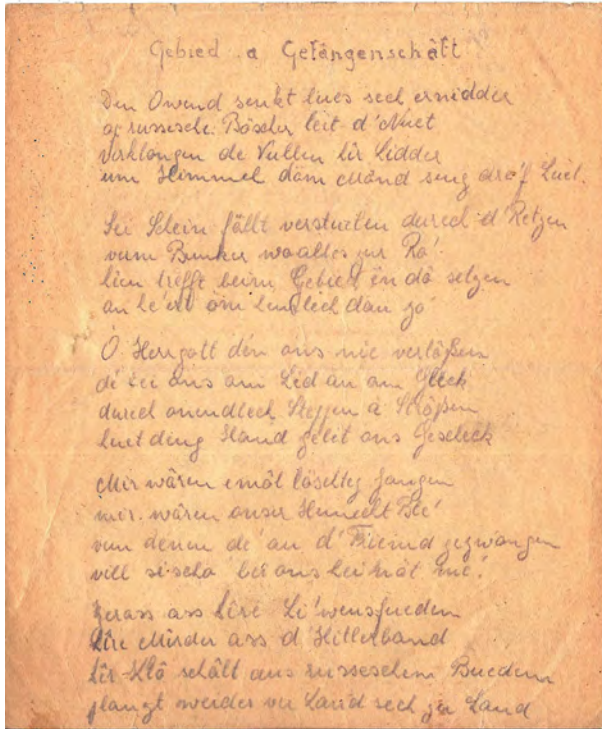 Gebied a Gefangenschäft
Den Owend senkt lues sech ernidder
op russesche Bässcher leit d'Nuet
verklongen de Vullen hir Lidder
um Himmel dām Mǒnd seng drof Luet.
Säi Schein fällt verstuelen durech d'Retzen
vum Bunker wo alles zur Ro'
hien trefft beim Gebied en do setzen
an he'ert öm hemlech dan zo
O Herrgott den ons nie verlößen
de' bei ons am Led an am Gleck
durech onendlech Steppen a Strößen
huet deng Hand geleit ons Geschéck
Mir wären emöl löschteg Jongen
mir wären onser Hemecht trei
vun denen de' an d'Friemd gezwongen
vill si scho' bei ons hei nöt me'.
zerass ass hire Li'wensfuedem
hire Mierder ass d'Hitlerband
hir Klo schält aus russeschem Buedem
vu Land sech zu Land